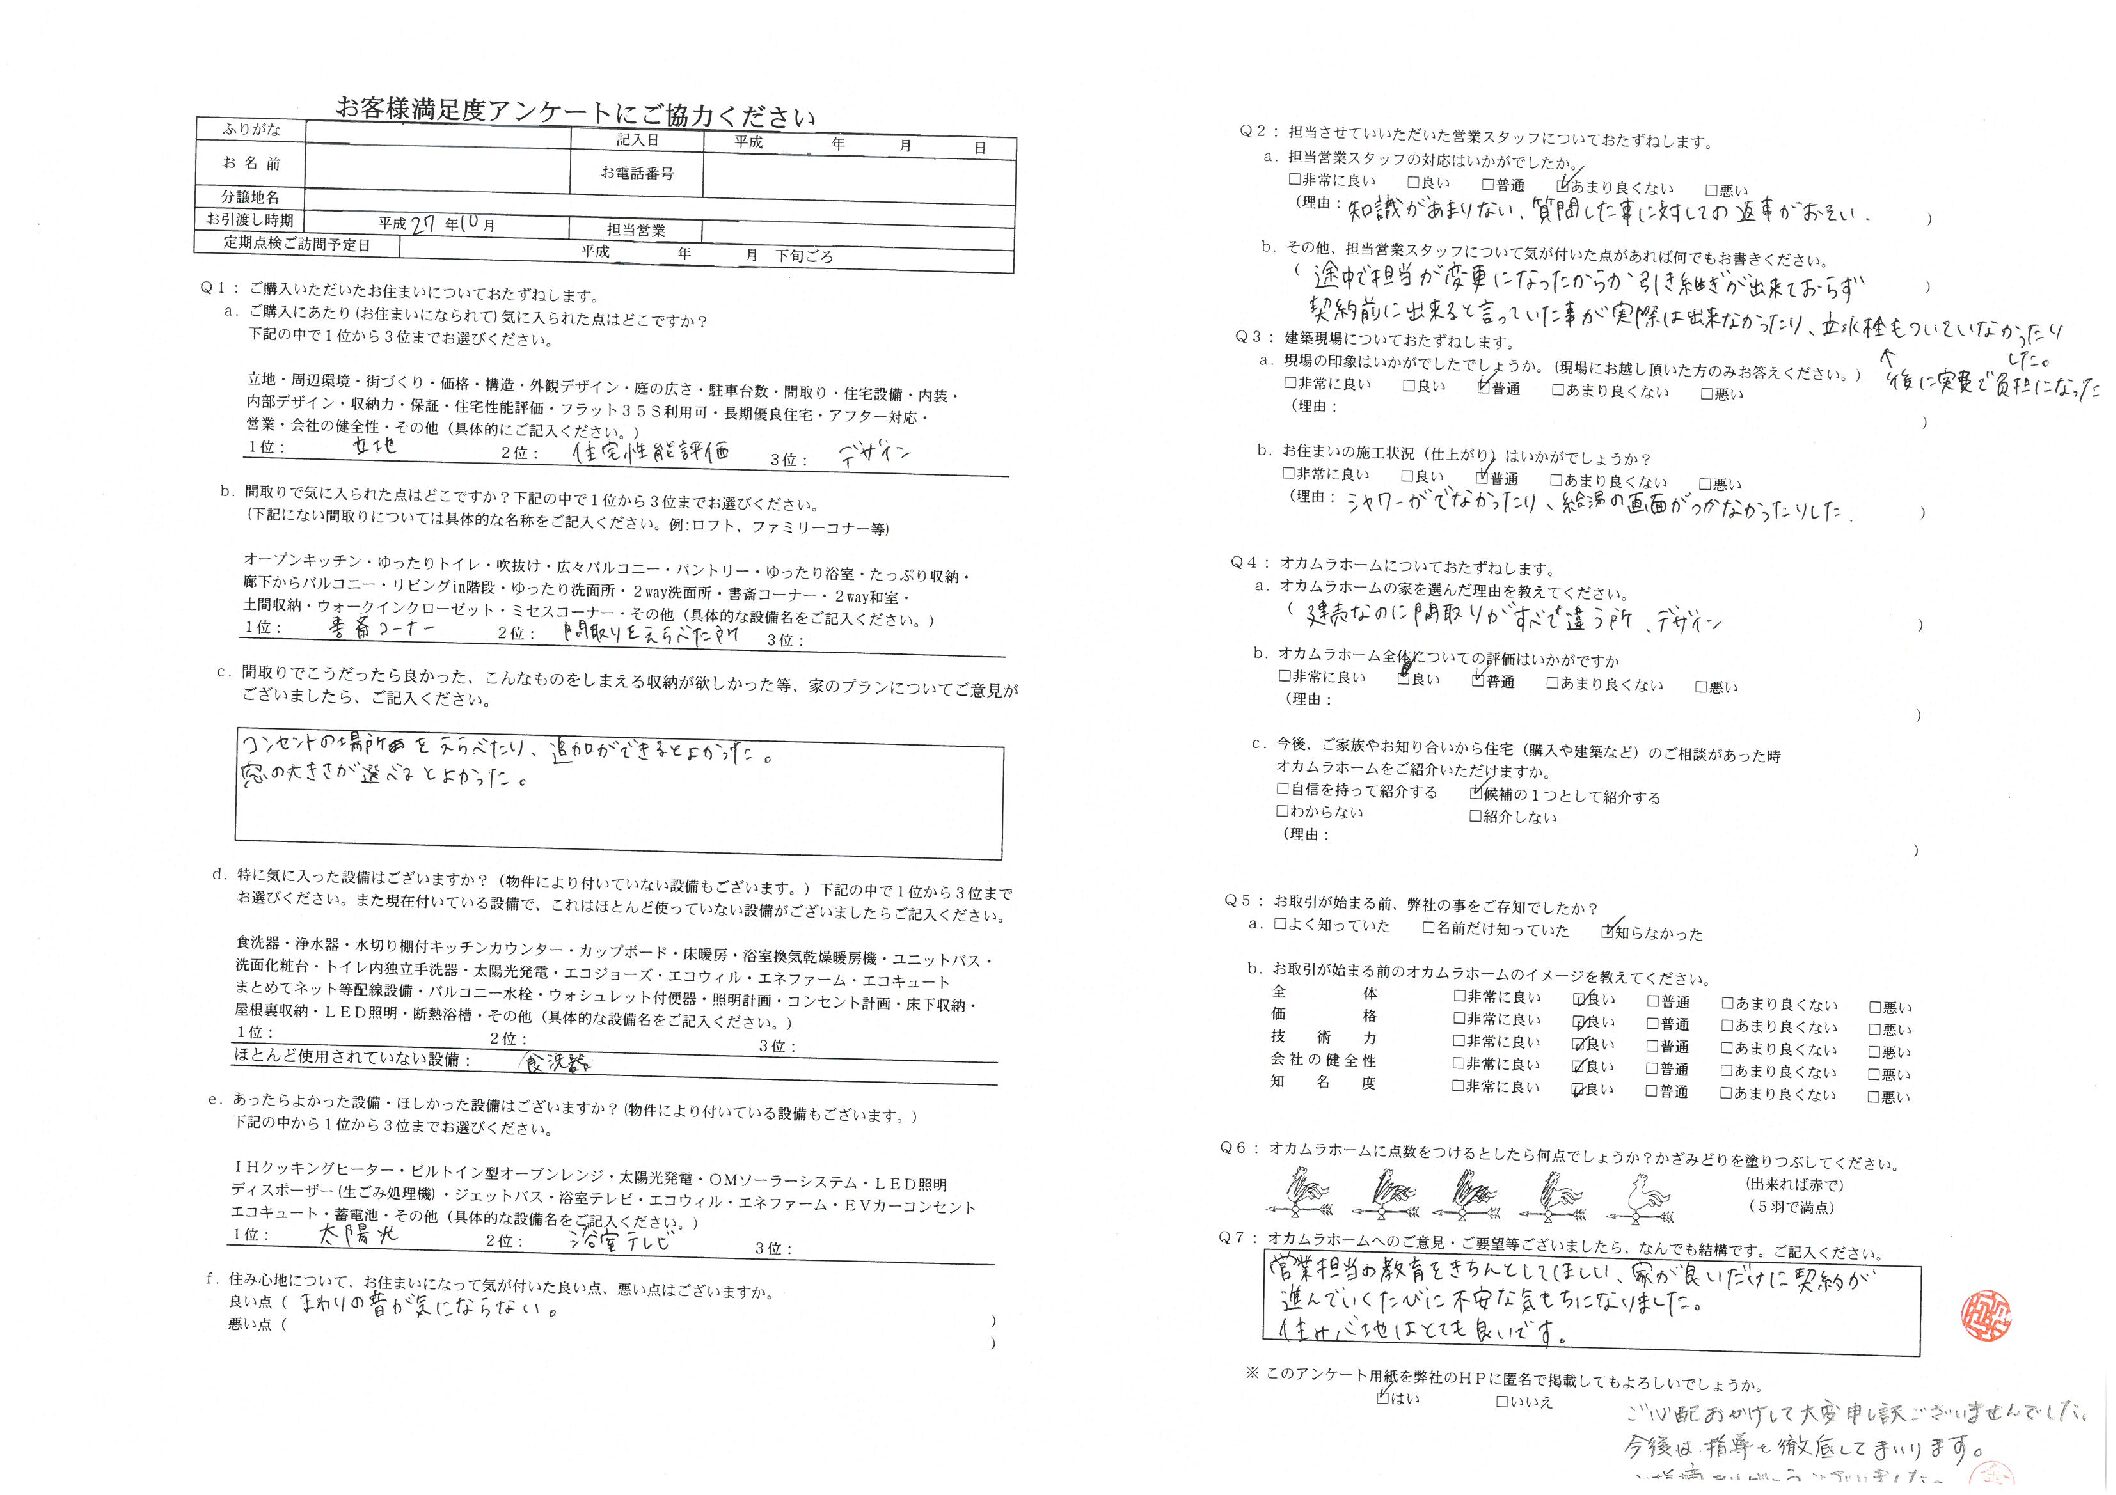 お客様満足度アンケートにご協力ください
ふりがな 記入日 平成 年 月 日
お名前 お電話番号
分譲地名
お引渡し時期 平成27年10月 担当営業
定期点検ご訪問予定日 平成 年 月 下旬ごろ
Q1：ご購入いただいたお住まいについておたずねします。
a．ご購入にあたり(お住まいになられて)気に入られた点はどこですか？
下記の中で1位から3位までお選びください。
立地・周辺環境・街づくり・価格・構造・外観デザイン・庭の広さ・駐車台数・間取り・住宅設備・内装・
内部デザイン・収納力・保証・住宅性能評価・フラット35S利用可・長期優良住宅・アフター対応・
営業・会社の健全性・その他（具体的にご記入ください。）
1位： 立地 2位： 住宅性能評価 3位： デザイン
b．間取りで気に入られた点はどこですか？下記の中で1位から3位までお選びください。
(下記にない間取りについては具体的な名称をご記入ください。例:ロフト、ファミリーコーナー等)
オープンキッチン・ゆったりトイレ・吹抜け・広々バルコニー・パントリー・ゆったり浴室・たっぷり収納・
廊下からバルコニー・リビングin階段・ゆったり洗面所・2way洗面所・書斎コーナー・2way和室・
土間収納・ウォークインクローゼット・ミセスコーナー・その他（具体的な設備名をご記入ください。）
1位： 書斎コーナー 2位： 間取りをえらべた所 3位：
c．間取りでこうだったら良かった、こんなものをしまえる収納が欲しかった等、家のプランについてご意見が
ございましたら、ご記入ください。
コンセントの場所をえらべたり、追加ができるとよかった。
窓の大きさが選べるとよかった。
d．特に気に入った設備はございますか？（物件により付いていない設備もございます。）下記の中で1位から3位まで
お選びください。また現在付いている設備で、これはほとんど使っていない設備がございましたらご記入ください。
食洗器・浄水器・水切り棚付キッチンカウンター・カップボード・床暖房・浴室換気乾燥暖房機・ユニットバス・
洗面化粧台・トイレ内独立手洗器・太陽光発電・エコジョーズ・エコウィル・エネファーム・エコキュート
まとめてネット等配線設備・バルコニー水栓・ウォシュレット付便器・照明計画・コンセント計画・床下収納・
屋根裏収納・LED照明・断熱浴槽・その他（具体的な設備名をご記入ください。）
1位： 2位： 3位：
ほとんど使用されていない設備： 食洗器
e．あったらよかった設備・ほしかった設備はございますか？(物件により付いている設備もございます。)
下記の中から1位から3位までお選びください。
IHクッキングヒーター・ビルトイン型オーブンレンジ・太陽光発電・OMソーラーシステム・LED照明
ディスポーザー(生ごみ処理機)・ジェットバス・浴室テレビ・エコウィル・エネファーム・EVカーコンセント
エコキュート・蓄電池・その他（具体的な設備名をご記入ください。）
1位： 太陽光 2位： 浴室テレビ 3位：
f．住み心地について、お住まいになって気が付いた良い点、悪い点はございますか。
良い点（まわりの音が気にならない。）
悪い点（ ）
Q2：担当させていいただいた営業スタッフについておたずねします。
a．担当営業スタッフの対応はいかがでしたか。
□非常に良い □良い □普通 ☑あまり良くない □悪い
（理由：知識があまりない、質問した事に対しての返事がおそい. ）
b．その他、担当営業スタッフについて気が付いた点があれば何でもお書きください。
（途中で担当が変更になったからか引き継ぎが出来ておらず ）
契約前に出来ると言っていた事が実際は出来なかったり、立水栓もついていなかったり
した。
↑
後に実費で負担になった
Q3：建築現場についておたずねします。
a．現場の印象はいかがでしたでしょうか。(現場にお越し頂いた方のみお答えください。)
□非常に良い □良い ☑普通 □あまり良くない □悪い
（理由： ）
b．お住まいの施工状況（仕上がり）はいかがでしょうか？
□非常に良い □良い ☑普通 □あまり良くない □悪い
（理由：シャワーがでなかったり、給湯の画面がつかなかったりした. ）
Q4：オカムラホームについておたずねします。
a．オカムラホームの家を選んだ理由を教えてください。
（建売なのに間取りがすべて違う所、デザイン ）
b．オカムラホーム全体についての評価はいかがですか
□非常に良い □良い ☑普通 □あまり良くない □悪い
（理由： ）
c．今後、ご家族やお知り合いから住宅（購入や建築など）のご相談があった時
オカムラホームをご紹介いただけますか。
□自信を持って紹介する ☑候補の1つとして紹介する
□わからない □紹介しない
（理由： ）
Q5：お取引が始まる前、弊社の事をご存知でしたか？
a．□よく知っていた □名前だけ知っていた ☑知らなかった
b．お取引が始まる前のオカムラホームのイメージを教えてください。
全体 □非常に良い ☑良い □普通 □あまり良くない □悪い
価格 □非常に良い ☑良い □普通 □あまり良くない □悪い
技術力 □非常に良い ☑良い □普通 □あまり良くない □悪い
会社の健全性 □非常に良い ☑良い □普通 □あまり良くない □悪い
知名度 □非常に良い ☑良い □普通 □あまり良くない □悪い
Q6：オカムラホームに点数をつけるとしたら何点でしょうか？かざみどりを塗りつぶしてください。
(出来れば赤で)
(5羽で満点)
Q7：オカムラホームへのご意見・ご要望等ございましたら、なんでも結構です。ご記入ください。
営業担当の教育をきちんとしてほしい、家が良いだけに契約が
進んでいくたびに不安な気もちになりました。
住み心地はとても良いです。
※このアンケート用紙を弊社のHPに匿名で掲載してもよろしいでしょうか。
☑はい □いいえ
ご心配おかけして大変申し訳ございませんでした。
今後は指導を徹底してまいります。